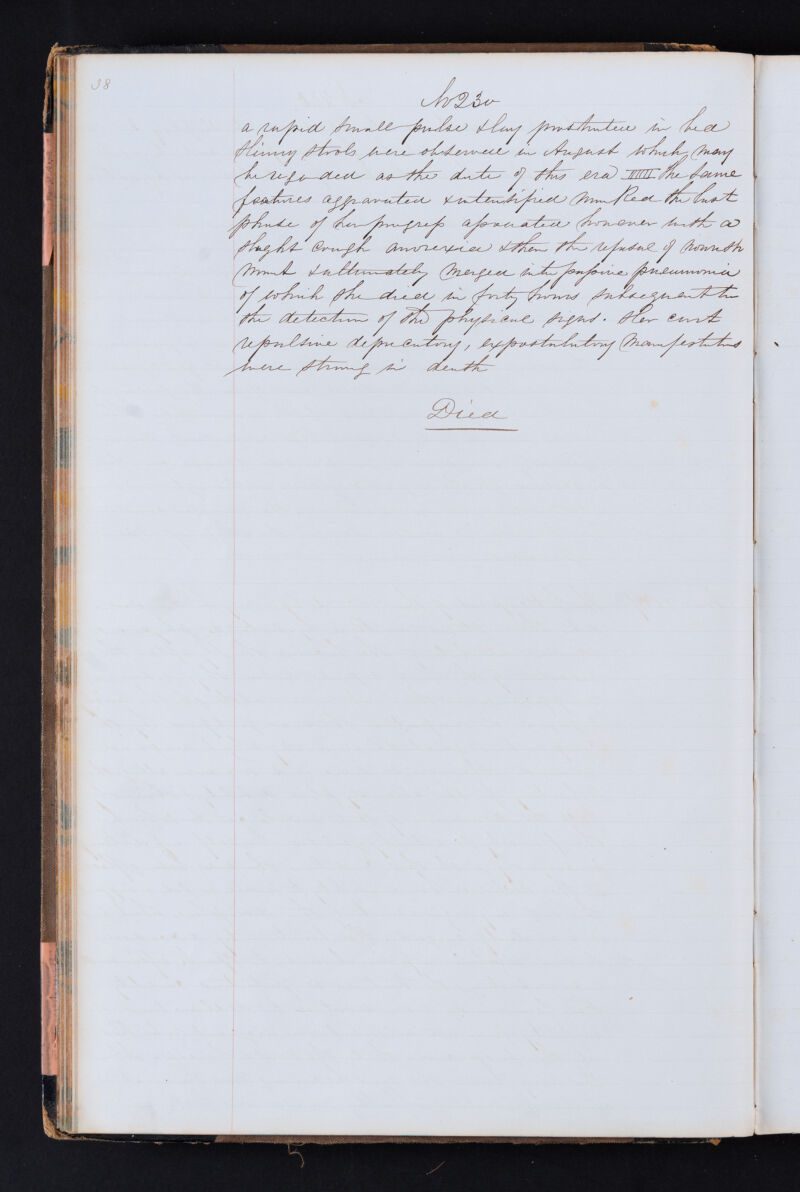 38
No 230
a rapid small pulse & lay prostrated in bed
Slimy stools were observed in August which may
be regaded as the date of this era IIIIII the same
features aggravated & intensified marked the last
phase of her progress associated however with a
slight cough anorexia & then the refusal of nourish
ment & ultimately merged into passive pneumonia
of which she died in forty hours subsequent to
the detection of the physical signs. Her curt
repulsive deprecatory, expostulatory manifestations
were strong in death
Died